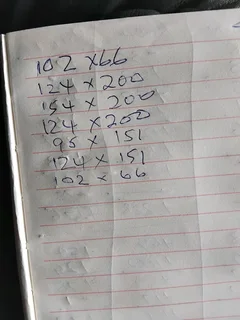 102 x 66
124 x 200
154 x 200
124 x 200
95 x 151
124 x 151
102 x 66